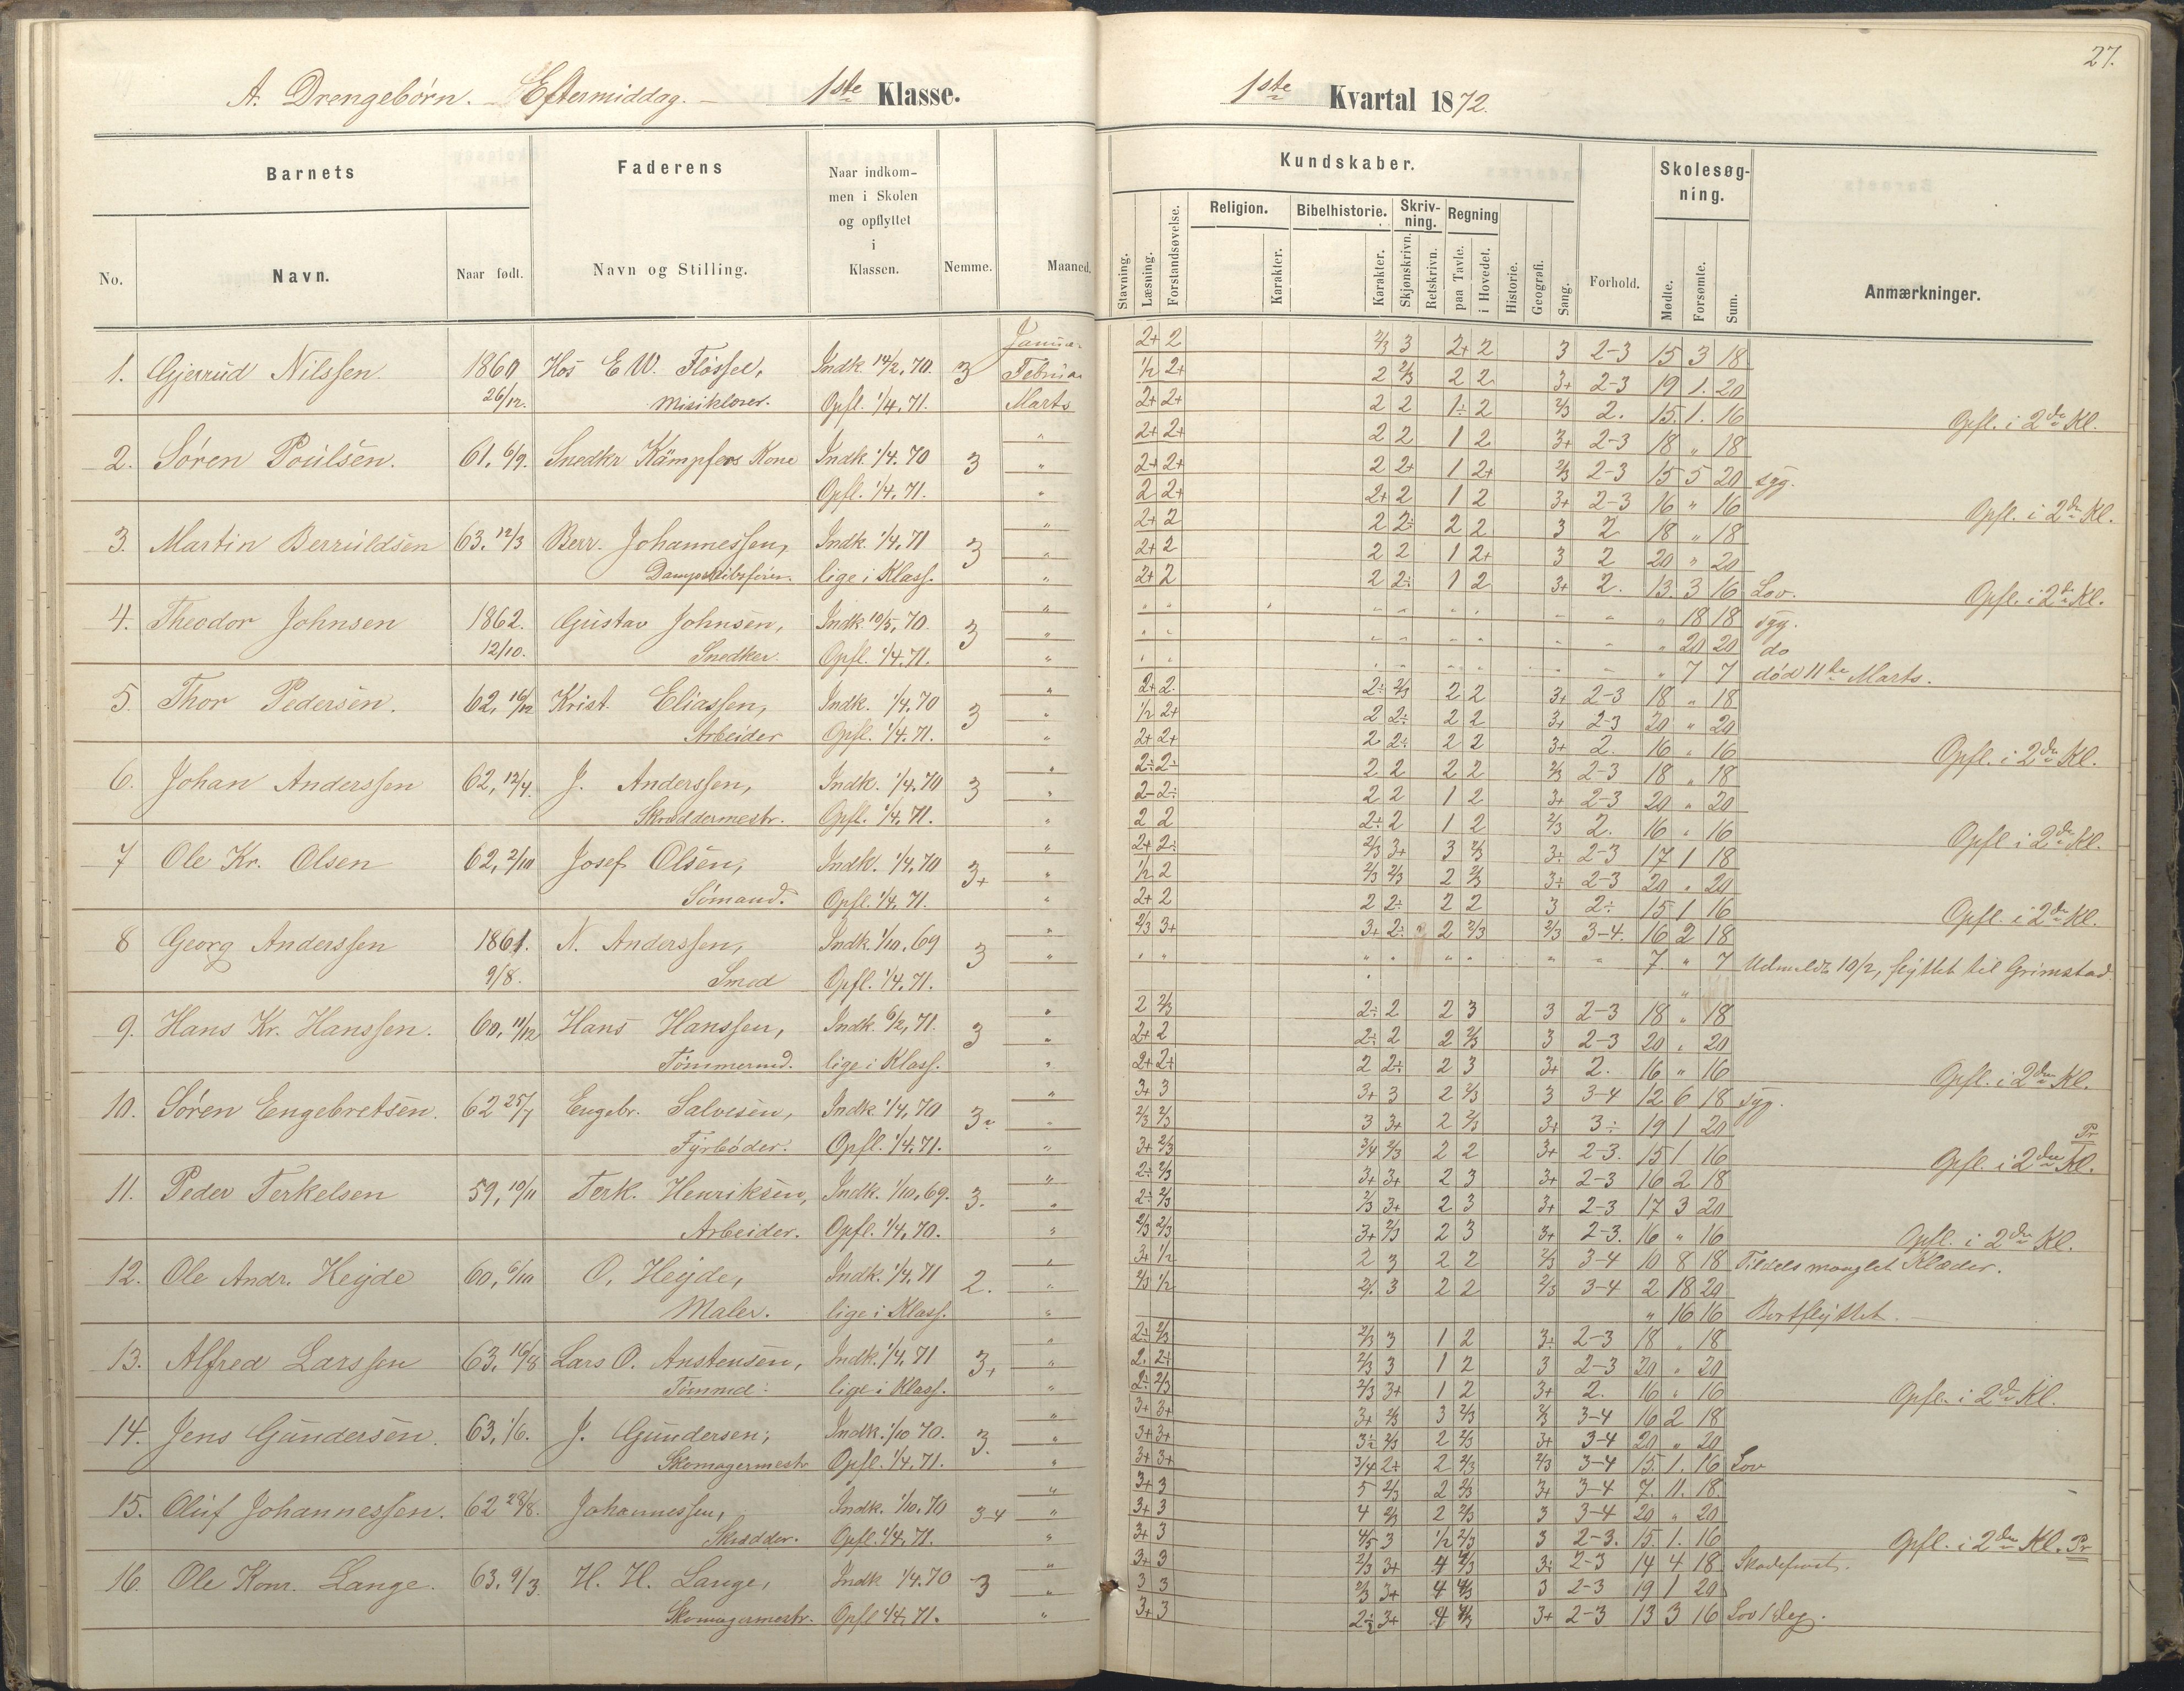 27.
A. Drengebørn. – Eftermiddag. – 1ste Klasse.
1ste Kvartal 1872.
Barnets Faderens Naar indkommen i Skolen og opflyttet i Klassen. Nemme. Maaned.
No. Navn. Naar født. Navn og Stilling.
Kundskaber. Forhold. Skolesøgning. Anmærkninger.
Stavning. Læsning. Forstandsøvelse. Religion. Karakter. Bibelhistorie. Karakter. Skrivning. Skjønskrivn. Retskrivn. Regning paa Tavle. i Hovedet. Historie. Geografi. Sang. Mødte. Forsømte. Sum.
1. Gjerrud Nilssen. 1860 Hos E W. Flössel, Indk. 14/2, 70. 3 Januar
26/12. Opfl. 1/4. 71. Februar
Marts
2. Søren Poulsen. 61, 6/9. Snedkr Kämpfers Kone Indk. 1/4. 70 3
Opfl. 1/4. 71.
3. Martin Berruldsen 63. 12/3 Berr. Johannessen, Indk. 1/4. 71 3
lige i Klass.
4. Theodor Johnsen 1862. Gustav Johnsen, Indk. 10/5, 70. 3
12/10. Snedker. Opfl. 1/4. 71.
5. Thor Pedersen. 62, 16/12 Krist. Eliassen, Indk. 1/4. 70 3
Arbeider Opfl. 1/4. 71.
6. Johan Anderssen 62, 12/4. J. Anderssen, Indk. 1/4. 70 3
Skræddermestr. Opfl. 1/4. 71.
7 Ole Kr. Olsen 62, 2/10 Josef Olsen, Indk. 1/4. 70 3+
Sømand. Opfl. 1/4. 71.
8 Georg Anderssen 1861. N. Anderssen, Indk. 1/10, 69 3
9/8. Smed Opfl. 1/4. 71.
9. Hans Kr. Hanssen. 60, 11/12 Hans Hanssen, Indk. 6/2, 71. 3
Tømmermd. lige i Klass.
10. Søren Engebretsen. 62 25/7 Engebr. Salvesen, Indk. 1/4. 70 3
Fyrbøder. Opfl. 1/4. 71.
11. Peder Terkelsen 59, 10/11 Terk. Henriksen, Indk. 1/10, 69. 3.
Arbeider. Opfl. 1/4. 70.
12. Ole Andr. Heyde 60, 6/10 O. Heyde, Indk. 1/4. 71 2.
Maler. lige i Klass.
13. Alfred Larssen 63, 16/8 Lars O. Anstensen, Indk. 1/4. 71 3+
Tømmd: lige i Klass.
14. Jens Gundersen. 63, 1/6. J. Gundersen, Indk. 1/10 70. 3.
Skomagermestr Opfl. 1/4. 71.
15. Oluf Johannessen. 62 28/8. Johannessen, Indk. 1/10. 70 3-4
Skrædder. Opfl. 1/4. 71.
16. Ole Konr. Lange. 63, 9/3. H. H. Lange, Indk 1/4. 70 3
Skomagermestr. Opfl 1/4. 71.
2+ 2 2/3 3 2+ 2 3 2-3 15 3 18
1/2 2+ 2 2/3 2 2 3+ 2-3 19 1. 20
2+ 2+ 2 2 1÷ 2 2/3 2. 15. 1. 16 Opfl. i 2den Kl.
2+ 2+ 2 2 1 2 3+ 2-3 18 " 18
2+ 2+ 2 2+ 1 2+ 2/3 2-3 15 5 20 syg.
2 2+ 2+ 2 1 2 3+ 2-3 16 " 16 Opfl. i 2den Kl.
2+ 2 2 2÷ 2 2 3 2 18 " 18
2+ 2 2 2 1 2+ 3 2 20 " 20
2+ 2 2 2÷ 1 2 3+ 2. 13. 3 16 Lov. Opfl. i 2den Kl.
" 18 18 syg.
" 20 20 do
" 7 7 død 11te Marts.
2+ 2. 2÷ 2/3 2 2 3+ 2-3 18 " 18
1/2 2+ 2 2÷ 2 2 3+ 2-3 20 " 20
2+ 2+ 2 2÷ 2 2 3+ 2. 16 " 16 Opfl. i 2den Kl.
2÷ 2÷ 2 2 2 2 2/3 2-3 18 " 18
2- 2÷ 2 2 1 2 3+ 2-3 20 " 20
2 2 2÷ 2 1 2 2/3 2. 16 " 16 Opfl i 2den Kl.
2+ 2÷ 2/3 3+ 3 2/3 3÷ 2-3 17 1 18
1/2 2 2/3 2/3 2 2/3 3÷ 2-3 20 " 20
2+ 2 2 2÷ 2 2 3 2÷ 15 1 16 Opfl. i 2den Kl.
2/3 3+ 3+ 2÷ 2 2/3 2/3 3-4. 16 2 18
7. " 7 Udmeldt 10/2, flyttet til Grimstad
2 2/3 2÷ 2 2 3 3 2-3 18 " 18
2+ 2 2÷ 2 2 2/3 3 2-3 20 " 20
2+ 2+ 2 2÷ 2 3 3+ 2. 16 " 16 Opfl. i 2den Kl.
3+ 3 3+ 3 2 2/3 3 3-4 12 6 18 syg.
2/3 2/3 3 3+ 2 2/3 3+ 3÷ 19 1 20
3+ 2/3 3/4 2/3 2 2 3+ 2-3. 15 1 16 Opfl. i 2den Kl. Pr
2÷ 2/3 3+ 3+ 2 3 3+ 2-3 16 2 18
2÷ 2/3 2/3 3+ 2 3 3+ 2-3 17 3 20
2/3 2/3 3+ 2/3 2 3 3+ 2-3. 16 " 16 Opfl. i 2den Kl.
3+ 1/2 2 3 2 2 2/3 3-4 10 8 18 Tildels manglet Klæder.
2/3 1/2 3 2 2 2/3 3-4 2 18 20
" 16 16 Bortflyttet.
2÷ 2/3 2/3 3 1 2 3÷ 2-3 18 " 18
2. 2÷ 2/3 3 1 2 3 2-3 20 " 20
2÷ 2/3 2/3 3+ 1 2 3+ 2. 16 " 16 Opfl. i 2den Kl.
3+ 3+ 3+ 2/3 3 2/3 2/3 3-4 16 2 18
3+ 3+ 3÷ 2/3 2 2/3 3+ 3-4 20 " 20
3+ 3+ 3/4 2+ 2 2/3 2/3 3-4 15. 1. 16 Lov
3+ 3 5 2/3 2 2/3 3+ 3-4 7. 11. 18
3+ 3 4 2/3 2 2/3 3 3-4 20 " 20
3+ 3 4/5 3 1/2 2/3 3 2-3. 15. 1. 16 Opfl. i 2den Kl. Pr
3+ 3 2/3 3+ 4 3÷ 2-3 14 4 18
3 3 2/3 3+ 4 3 2-3 19 1 20
3+ 3 3+ 4 3+ 2-3 13 3 16 Lov 1 Dag.